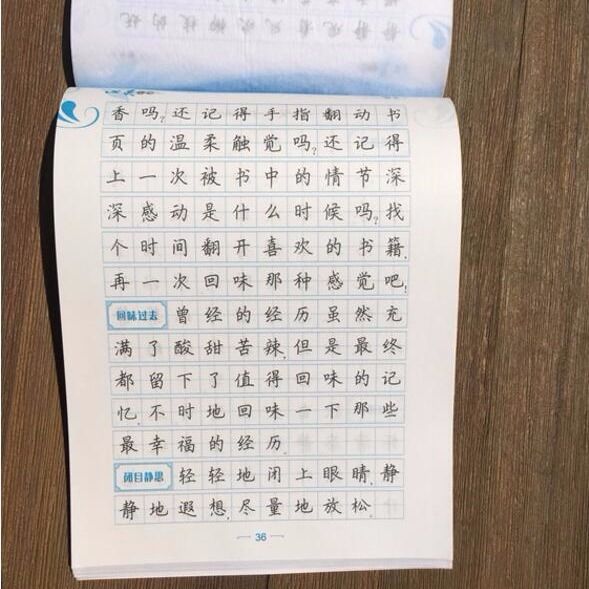 香吗?还记得手指翻动书
页的温柔触觉吗?还记得
上一次被书中的情节深
深感动是什么时候吗?找
个时间翻开喜欢的书籍,
再一次回味那种感觉吧!
回味过去 曾经的经历虽然充
满了酸甜苦辣,但是最终
都留下了值得回味的记
忆,不时地回味一下那些
最幸福的经历.
闭目静思 轻轻地闭上眼睛,静
静地遐想,尽量地放松,
36